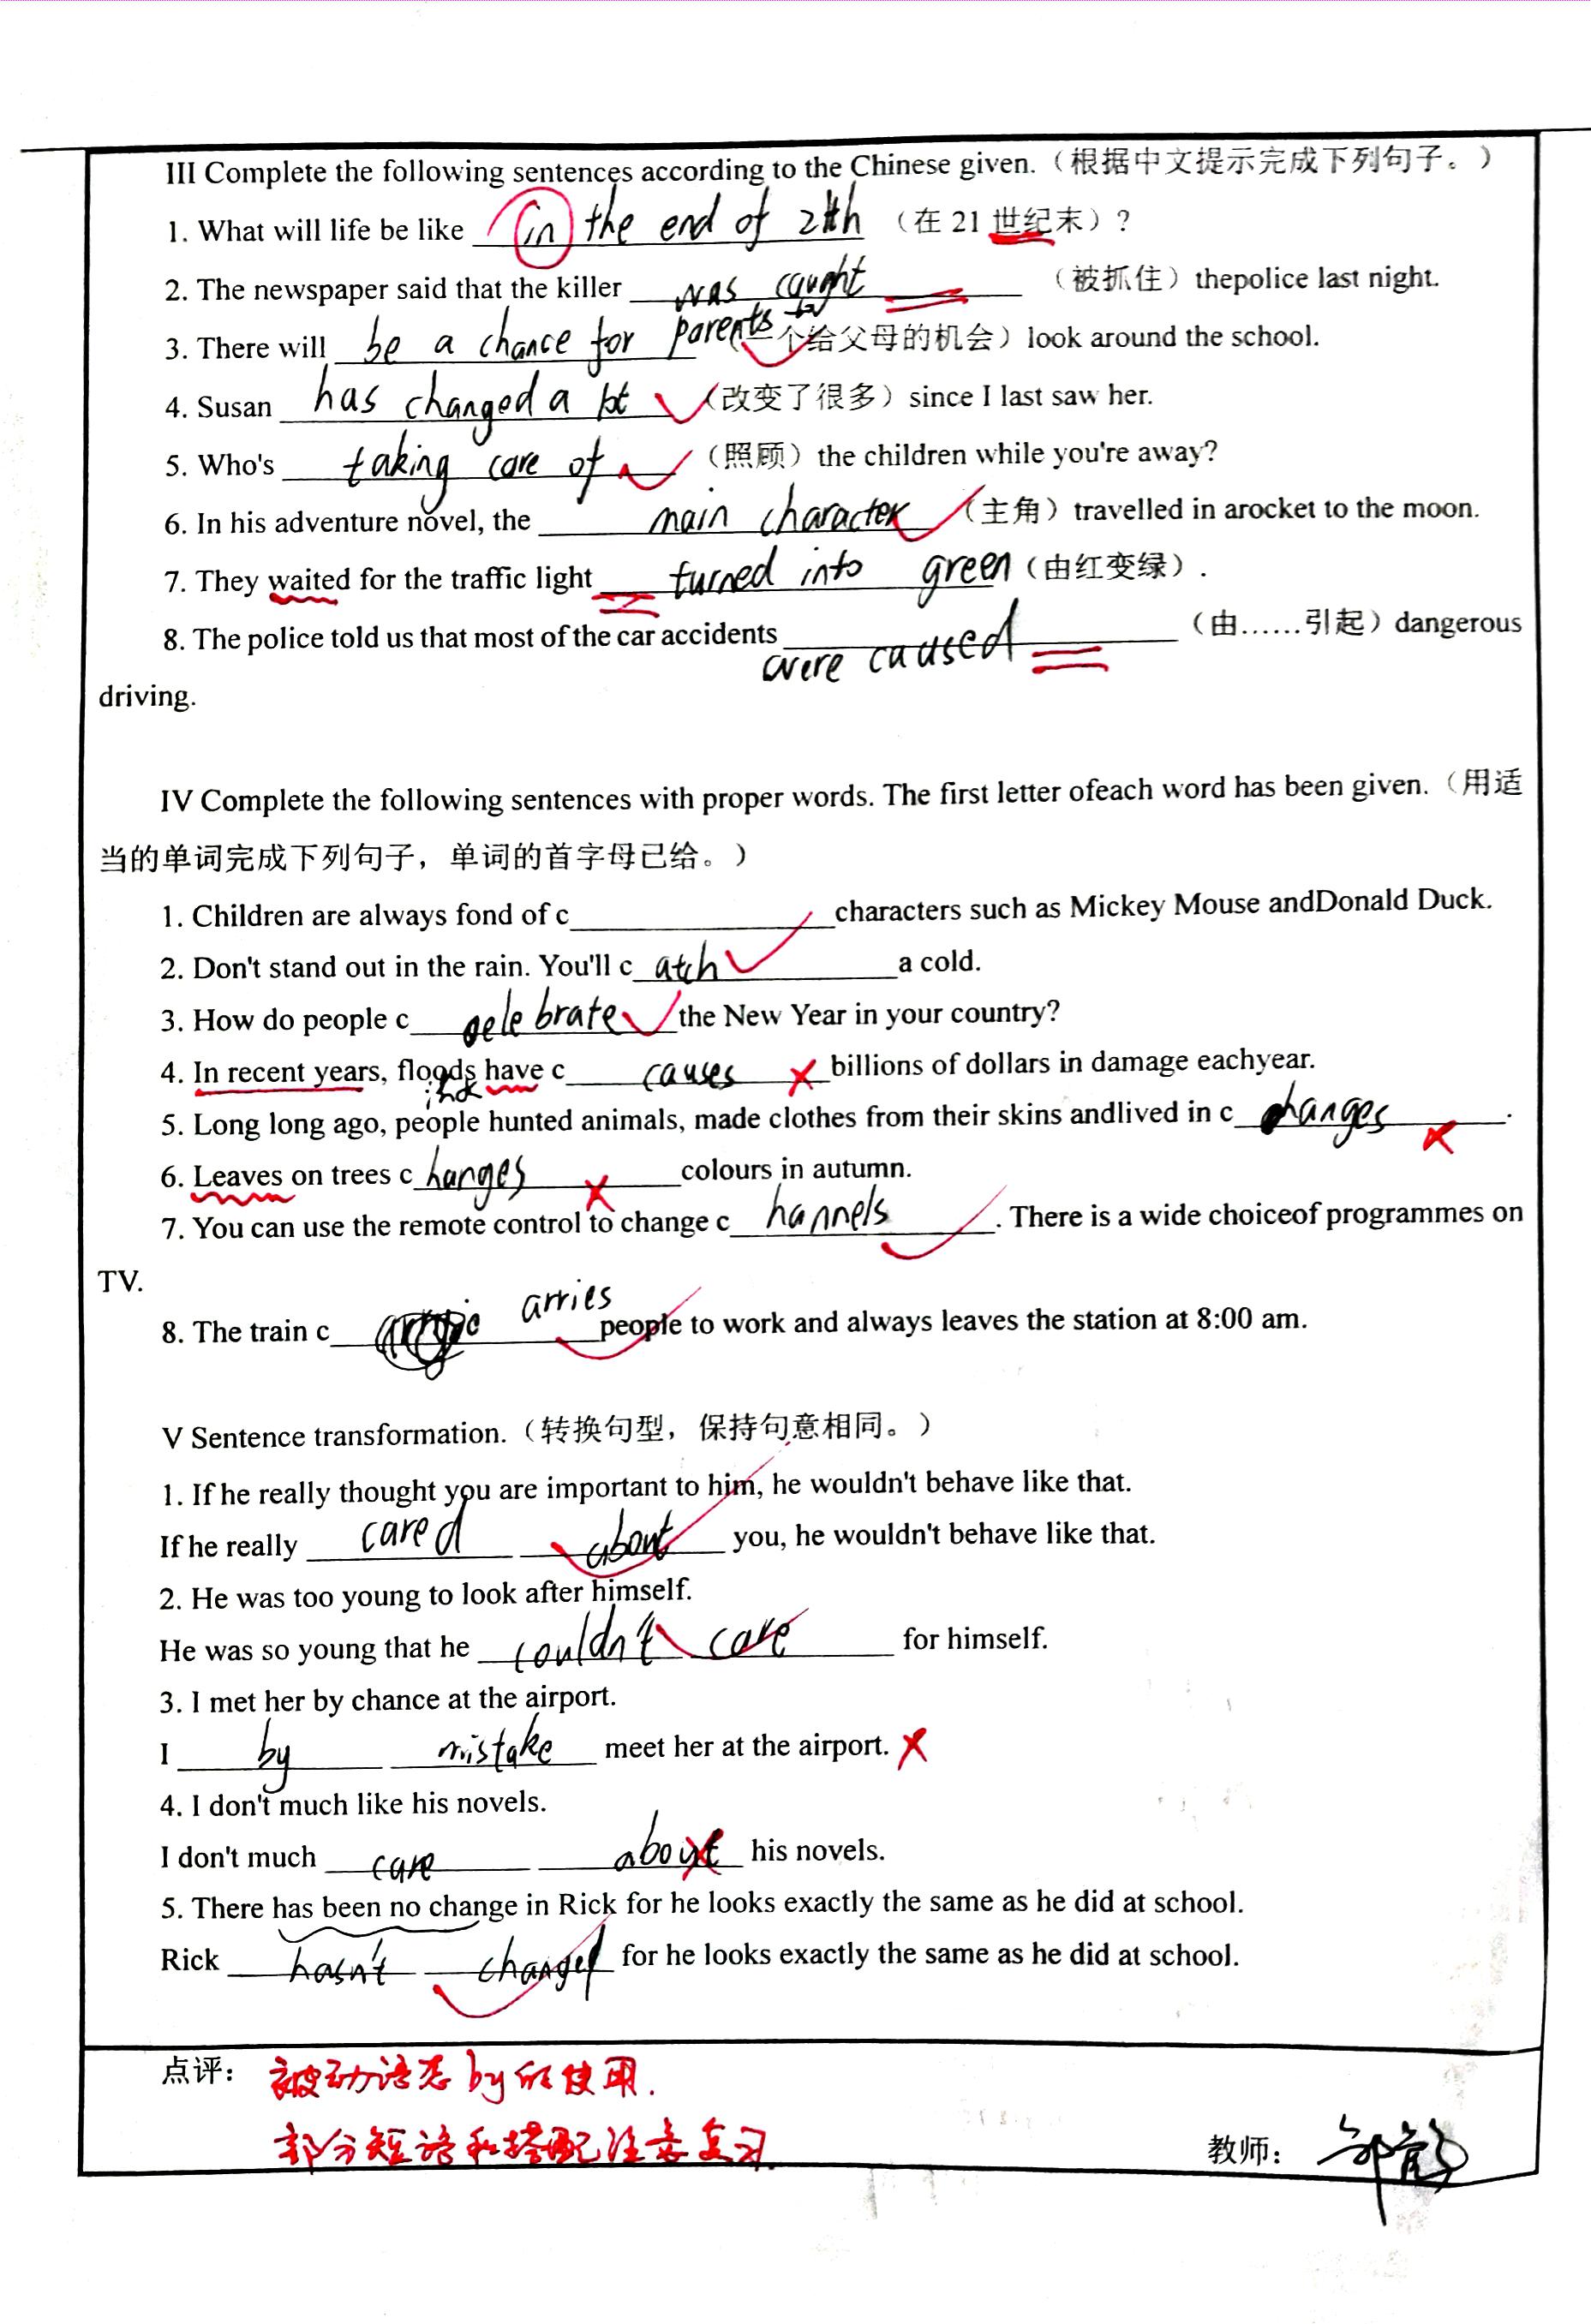 III Complete the following sentences according to the Chinese given.（根据中文提示完成下列句子。）
1. What will life be like in the end of 21th （在 21 世纪末）?
2. The newspaper said that the killer was caught （被抓住）thepolice last night.
3. There will be a chance for parents to （一个给父母的机会）look around the school.
4. Susan has changed a lot （改变了很多）since I last saw her.
5. Who's taking care of （照顾）the children while you're away?
6. In his adventure novel, the main character （主角）travelled in arocket to the moon.
7. They waited for the traffic light turned into green （由红变绿）.
8. The police told us that most of the car accidents were caused （由……引起）dangerous
driving.
IV Complete the following sentences with proper words. The first letter ofeach word has been given.（用适
当的单词完成下列句子，单词的首字母已给。）
1. Children are always fond of c characters such as Mickey Mouse andDonald Duck.
2. Don't stand out in the rain. You'll c atch a cold.
3. How do people c elebrate the New Year in your country?
4. In recent years, floods have c causes billions of dollars in damage eachyear.
5. Long long ago, people hunted animals, made clothes from their skins andlived in c hanges.
6. Leaves on trees c hanges colours in autumn.
7. You can use the remote control to change c hannels. There is a wide choiceof programmes on
TV.
8. The train c arries people to work and always leaves the station at 8:00 am.
V Sentence transformation.（转换句型，保持句意相同。）
1. If he really thought you are important to him, he wouldn't behave like that.
If he really cared about you, he wouldn't behave like that.
2. He was too young to look after himself.
He was so young that he couldn't care for himself.
3. I met her by chance at the airport.
I by mistake meet her at the airport.
4. I don't much like his novels.
I don't much care about his novels.
5. There has been no change in Rick for he looks exactly the same as he did at school.
Rick hasn't changed for he looks exactly the same as he did at school.
点评： 被动语态by的使用.
部分短语和搭配注意复习.
教师：